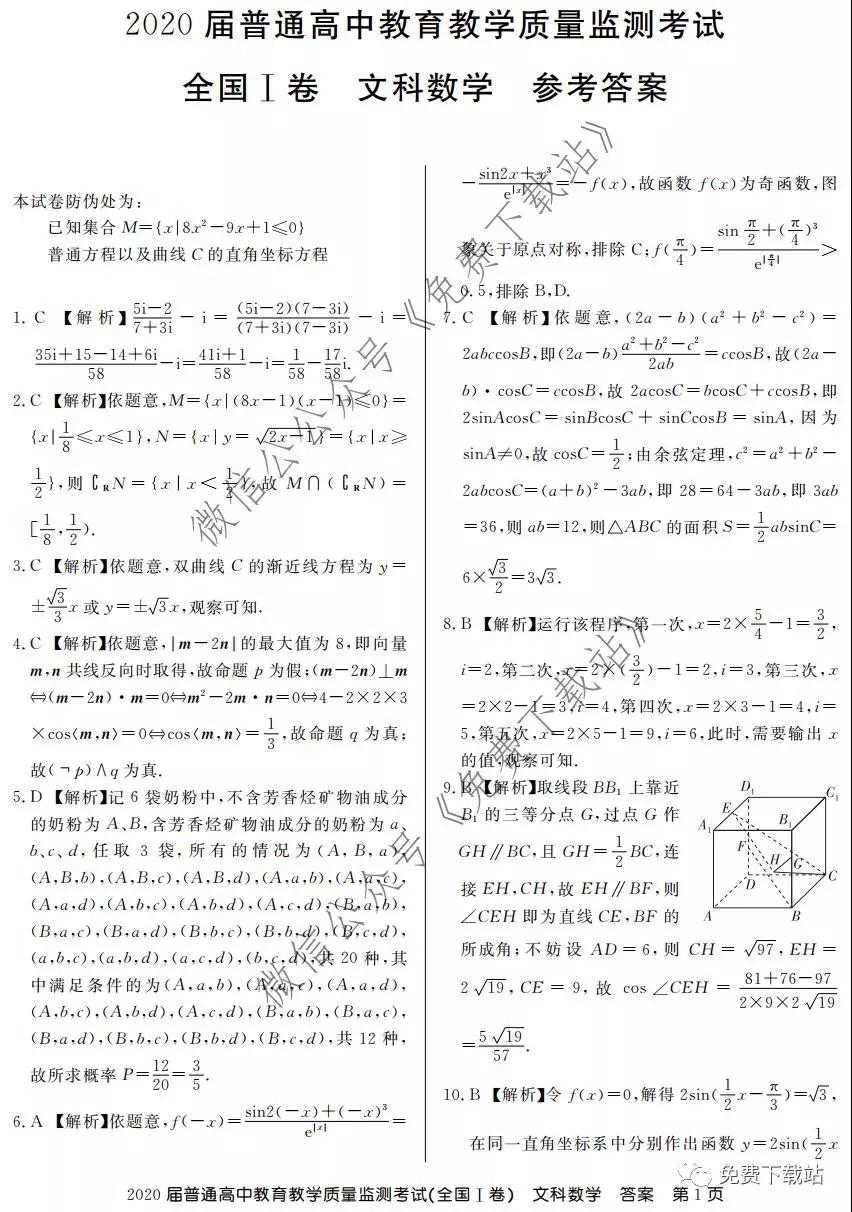 2020 届普通高中教育教学质量监测考试
全国 I 卷 文科数学 参考答案
本试卷防伪处为:
已知集合 M={x|8x²-9x+1≤0}
普通方程以及曲线 C 的直角坐标方程
1. C 【解析】(5i-2)/(7+3i) - i = (5i-2)(7-3i)/(7+3i)(7-3i) - i =
(35i+15-14+6i)/58 -i= (41i+1)/58 -i= 1/58 - 17/58 i.
2. C 【解析】依题意,M={x|(8x-1)(x-1)≤0}=
{x|1/8≤x≤1},N={x|y=√(2x-1)}={x|x≥
1/2},则∁RN={x|x<1/2},故 M∩(∁RN)=
[1/8,1/2).
3. C 【解析】依题意,双曲线 C 的渐近线方程为 y=
±√3/3 x 或 y=±√3x,观察可知.
4. C 【解析】依题意,|m-2n|的最大值为 8,即向量
m,n 共线反向时取得,故命题 p 为假;(m-2n)⊥m
⇔(m-2n)·m=0⇔m²-2m·n=0⇔4-2×2×3
×cos⟨m,n⟩=0⇔cos⟨m,n⟩=1/3,故命题 q 为真;
故(¬p)∧q 为真.
5. D 【解析】记 6 袋奶粉中,不含芳香烃矿物油成分
的奶粉为 A、B,含芳香烃矿物油成分的奶粉为 a、
b、c、d,任取 3 袋,所有的情况为(A,B,a),
(A,B,b),(A,B,c),(A,B,d),(A,a,b),(A,a,c),
(A,a,d),(A,b,c),(A,b,d),(A,c,d),(B,a,b),
(B,a,c),(B,a,d),(B,b,c),(B,b,d),(B,c,d),
(a,b,c),(a,b,d),(a,c,d),(b,c,d),共 20 种,其
中满足条件的为(A,a,b),(A,a,c),(A,a,d),
(A,b,c),(A,b,d),(A,c,d),(B,a,b),(B,a,c),
(B,a,d),(B,b,c),(B,b,d),(B,c,d),共 12 种,
故所求概率 P=12/20=3/5.
6. A 【解析】依题意,f(-x)=(sin2(-x)+(-x)³)/e^|x| =
-(sin2x+x³)/e^|x| =-f(x),故函数 f(x)为奇函数,图
象关于原点对称,排除 C;f(π/4)=(sin π/2+(π/4)³)/e^|π/4| >
0.5,排除 B,D.
7. C 【解析】依题意,(2a-b)(a²+b²-c²)=
2abccosB,即(2a-b)(a²+b²-c²)/2ab=ccosB,故(2a-
b)·cosC=ccosB,故 2acosC=bcosC+ccosB,即
2sinAcosC=sinBcosC+sinCcosB=sinA,因为
sinA≠0,故 cosC=1/2;由余弦定理,c²=a²+b²-
2abcosC=(a+b)²-3ab,即 28=64-3ab,即 3ab
=36,则 ab=12,则△ABC 的面积 S=1/2 absinC=
6×√3/2=3√3.
8. B 【解析】运行该程序,第一次,x=2×5/4-1=3/2,
i=2,第二次,x=2×(3/2)-1=2,i=3,第三次,x
=2×2-1=3,i=4,第四次,x=2×3-1=4,i=
5,第五次,x=2×5-1=9,i=6,此时,需要输出 x
的值,观察可知.
9. B 【解析】取线段 BB₁ 上靠近
B₁ 的三等分点 G,过点 G 作
GH∥BC,且 GH=1/2 BC,连
接 EH,CH,故 EH∥BF,则
∠CEH 即为直线 CE,BF 的
所成角;不妨设 AD=6,则 CH=√97,EH=
2√19,CE=9,故 cos∠CEH=(81+76-97)/(2×9×2√19)
=5√19/57.
D₁
C₁
E
A₁
B₁
F
G
H
D
C
A
B
10. B 【解析】令 f(x)=0,解得 2sin(1/2 x-π/3)=√3,
在同一直角坐标系中分别作出函数 y=2sin(1/2 x
微信公众号《免费下载站》
微信公众号《免费下载站》
免费下载站
2020 届普通高中教育教学质量监测考试(全国 I 卷) 文科数学 答案 第 1 页